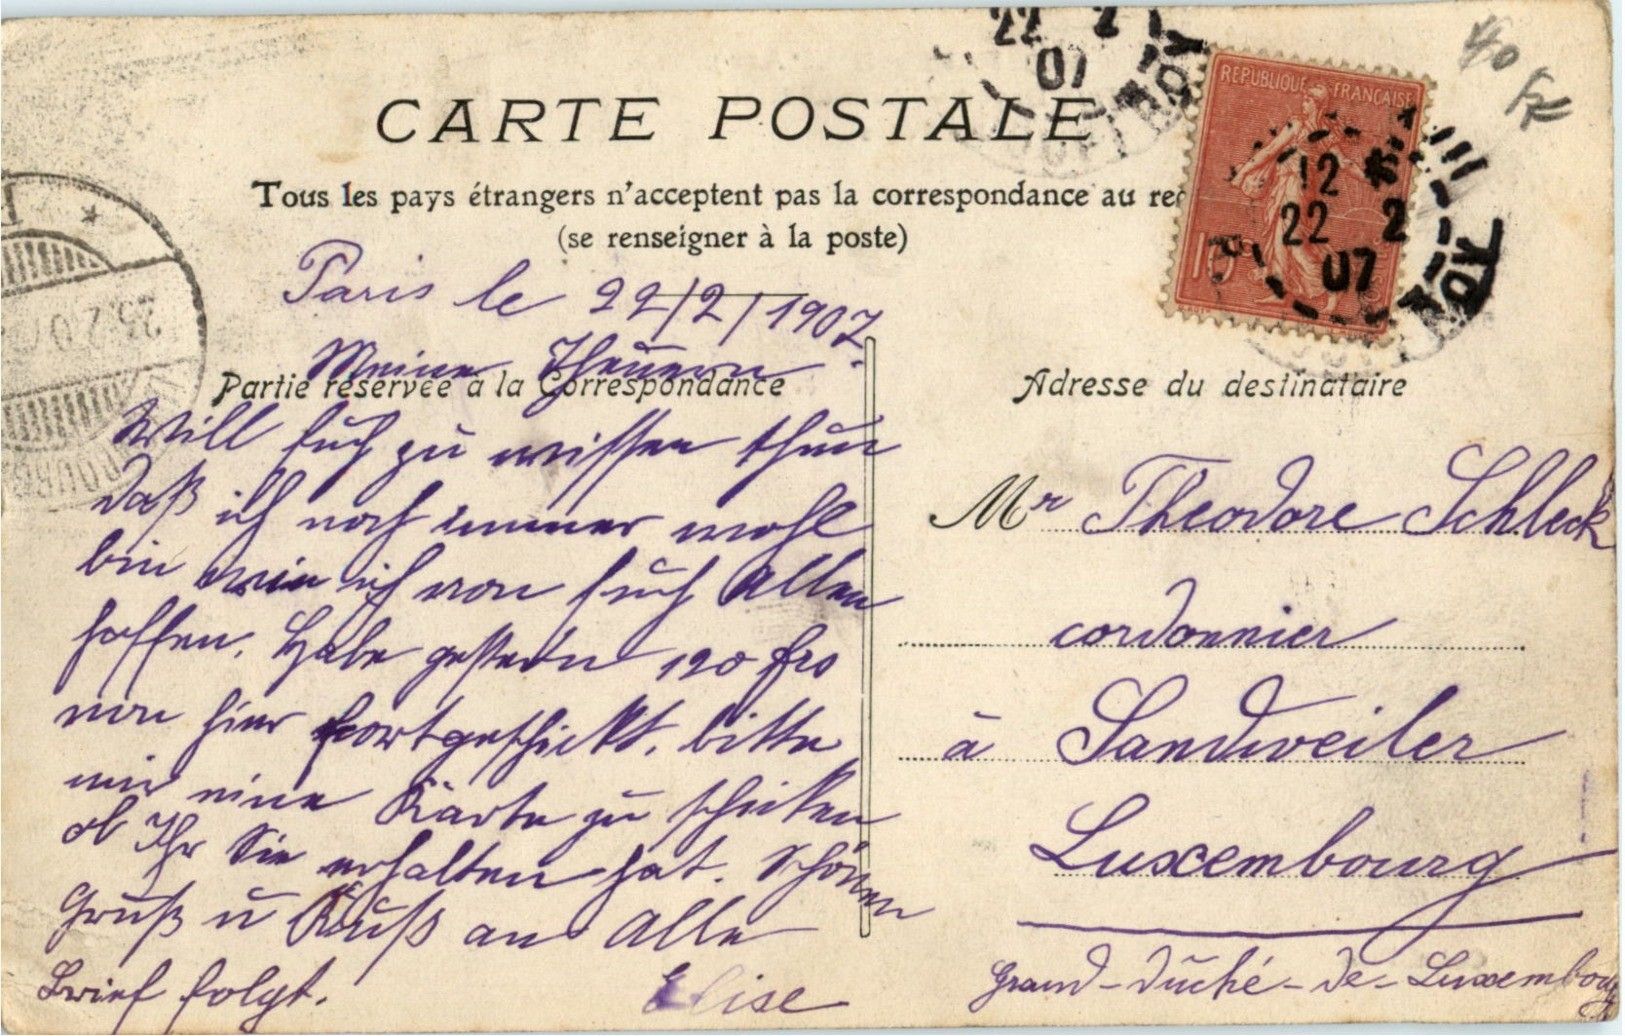 CARTE POSTALE
Tous les pays étrangers n'acceptent pas la correspondance au rec
(se renseigner à la poste)
Paris le 22/2/1907.
Meine Theuern
Partie réservée à la Correspondance
Will Euch zu wissen thun
daß ich noch immer wohl
bin wie ich von Euch Allen
hoffen. Habe gestern 190 frs
von hier fortgeschickt. bitte
mir eine Karte zu schicken
ob Ihr Sie erhalten hat. Schönen
Gruß u Kuß an Alle
Brief folgt. Elise
Adresse du destinataire
Mr Theodore Schleck
cordonnier
à Sandweiler
Luxembourg
Grand-duché-de-Luxembourg
REPUBLIQUE FRANÇAISE
12
22 2
07
22 2
07
23.2.07
40 Fr